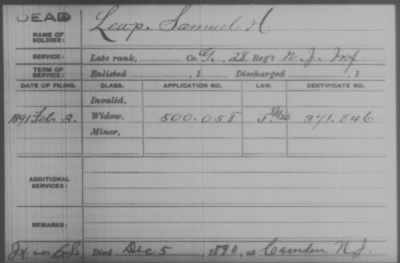 DEAD
NAME OF SOLDIER: Leap, Samuel H
SERVICE: Late rank, Co. G, 28 Reg't N. J. Inf
TERM OF SERVICE: Enlisted , 1 Discharged , 1
DATE OF FILING. CLASS. APPLICATION NO. LAW. CERTIFICATE NO.
Invalid,
1891 Feb. 3. Widow, 500.058 371.846
Minor,
ADDITIONAL SERVICES:
REMARKS:
Died Dec 5, 1890, at Camden N. J.